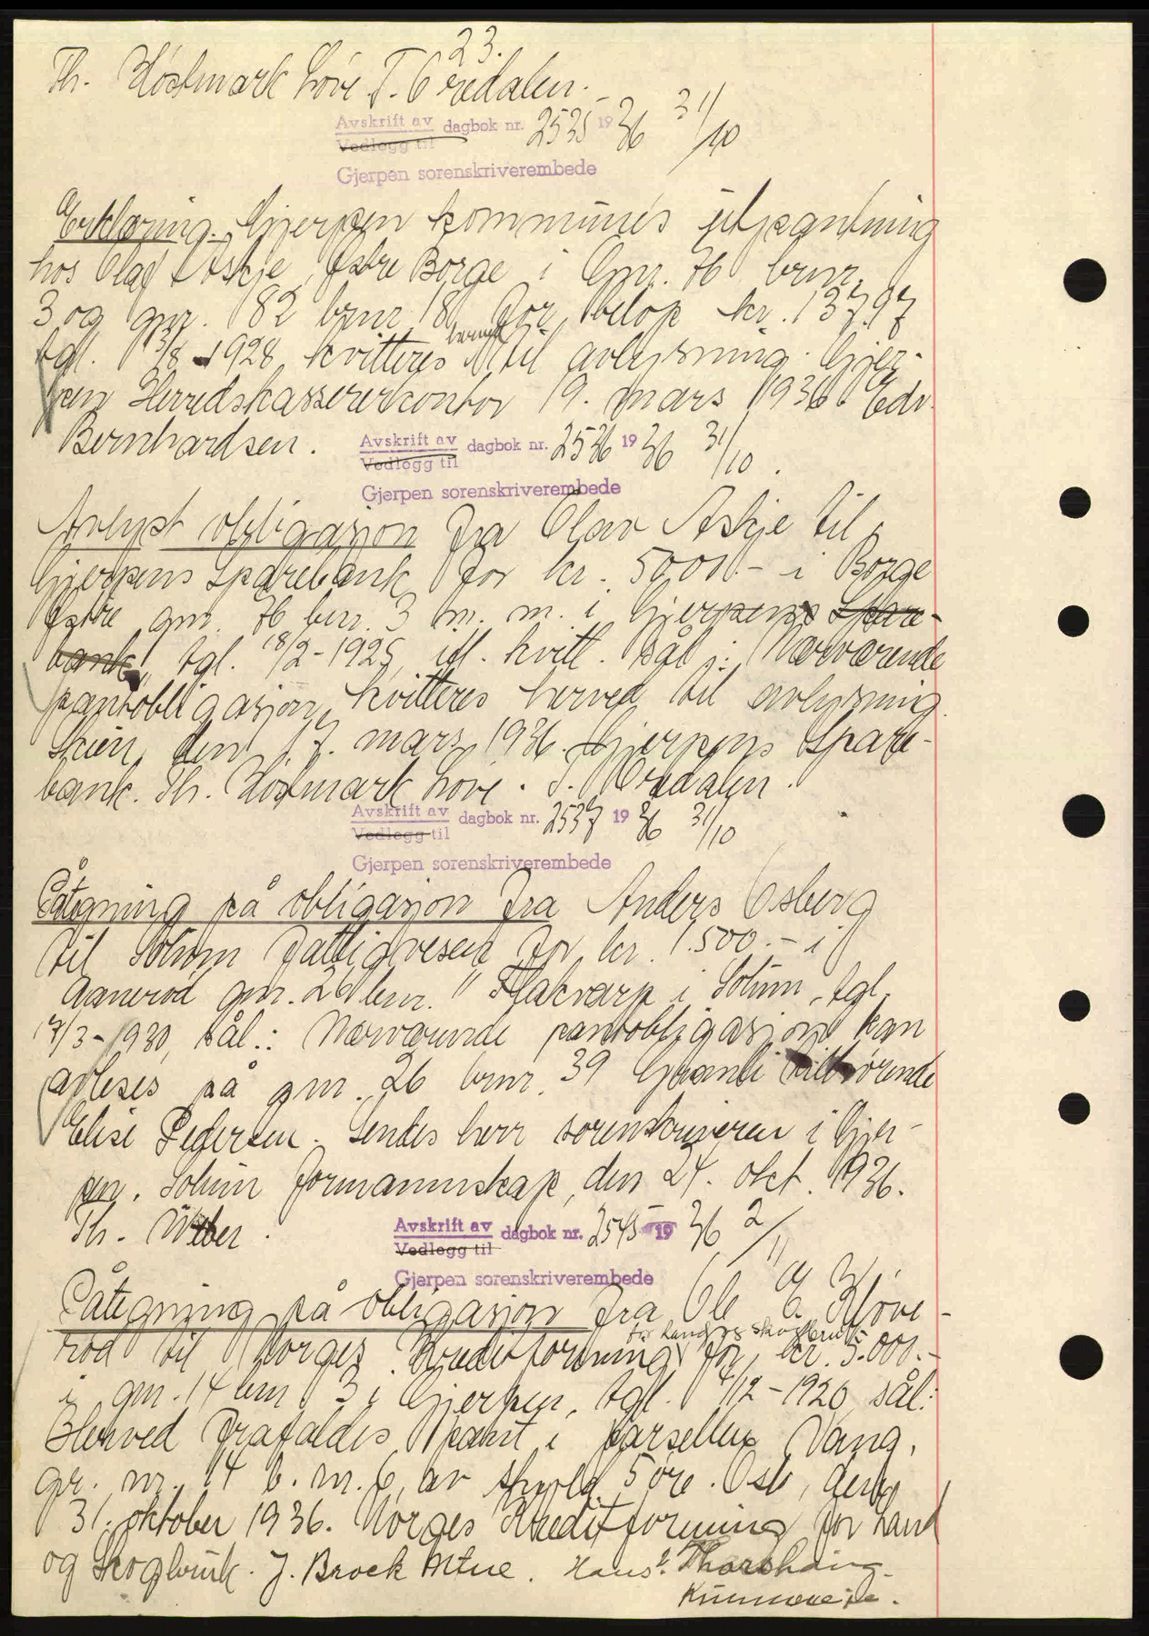 23.
Th. Höstmark Lövi T. Credalen.
Avskrift av dagbok nr. 2535 1936 31/10
Vedlegg til
Gjerpen sorenskriverembede
Erklæring. Gjerpen kommunes utpantning
hos Olaf Askje, Östre Borge i Gnr. 76 brnr.
3 og gnr. 82 brnr. 18 for beløp kr. 137.97
tgl. 13/8-1928 kvitteres herved til avlysning. Gjer-
pen Herredskassererkontor 19. mars 1936. Edv.
Bernhardsen.
Avskrift av dagbok nr. 2536 1936 31/10.
Vedlegg til
Gjerpen sorenskriverembede
Avlyst obligasjon fra Olav Askje til
Gjerpens Sparebank for kr. 5000.- i Borge
østre gnr. 76 bnr. 3 m. m. i Gjerpens Spare-
bank, tgl. 18/2-1925, ifl. kvitt. sål: Nærværende
pantobligasjon kvitteres herved til avlysning.
Skien, den 17. mars 1936. Gjerpens Spare-
bank. Th. Höstmark Lövi. T. Credalen.
Avskrift av dagbok nr. 2537 1936 31/10
Vedlegg til
Gjerpen sorenskriverembede
Påtegning på obligasjon fra Anders Osberg
til Solum Fattigvesen for kr. 1.500.- i
Aanerød gnr. 26 bnr. 11 Flakvarp i Solum, tgl.
17/3-1930, sål.: Nærværende pantobligasjon kan
avleses på gnr. 26 bnr. 39 Granli tilhørende
Elise Pedersen. Sendes herr sorenskriveren i Gjer-
pen. Solum formannskap, den 24. okt. 1936.
Th. Weber.
Avskrift av dagbok nr. 2545 1936 2/11
Vedlegg til
Gjerpen sorenskriverembede
Påtegning på obligasjon fra Ole G. Kløve-
rød til Norges Kreditforening for land og skogbruk for kr. 5.000.-
i gnr. 14 bnr 3 i Gjerpen, tgl. 4/12-1920, sål:
Herved frafaldes pant i parsellen Vang,
gr. nr. 14 b. nr. 6, av skyld 5 øre. Oslo, den
31. oktober 1936. Norges Kreditforening for land
og Skogbruk. J. Brock Utne. Hans